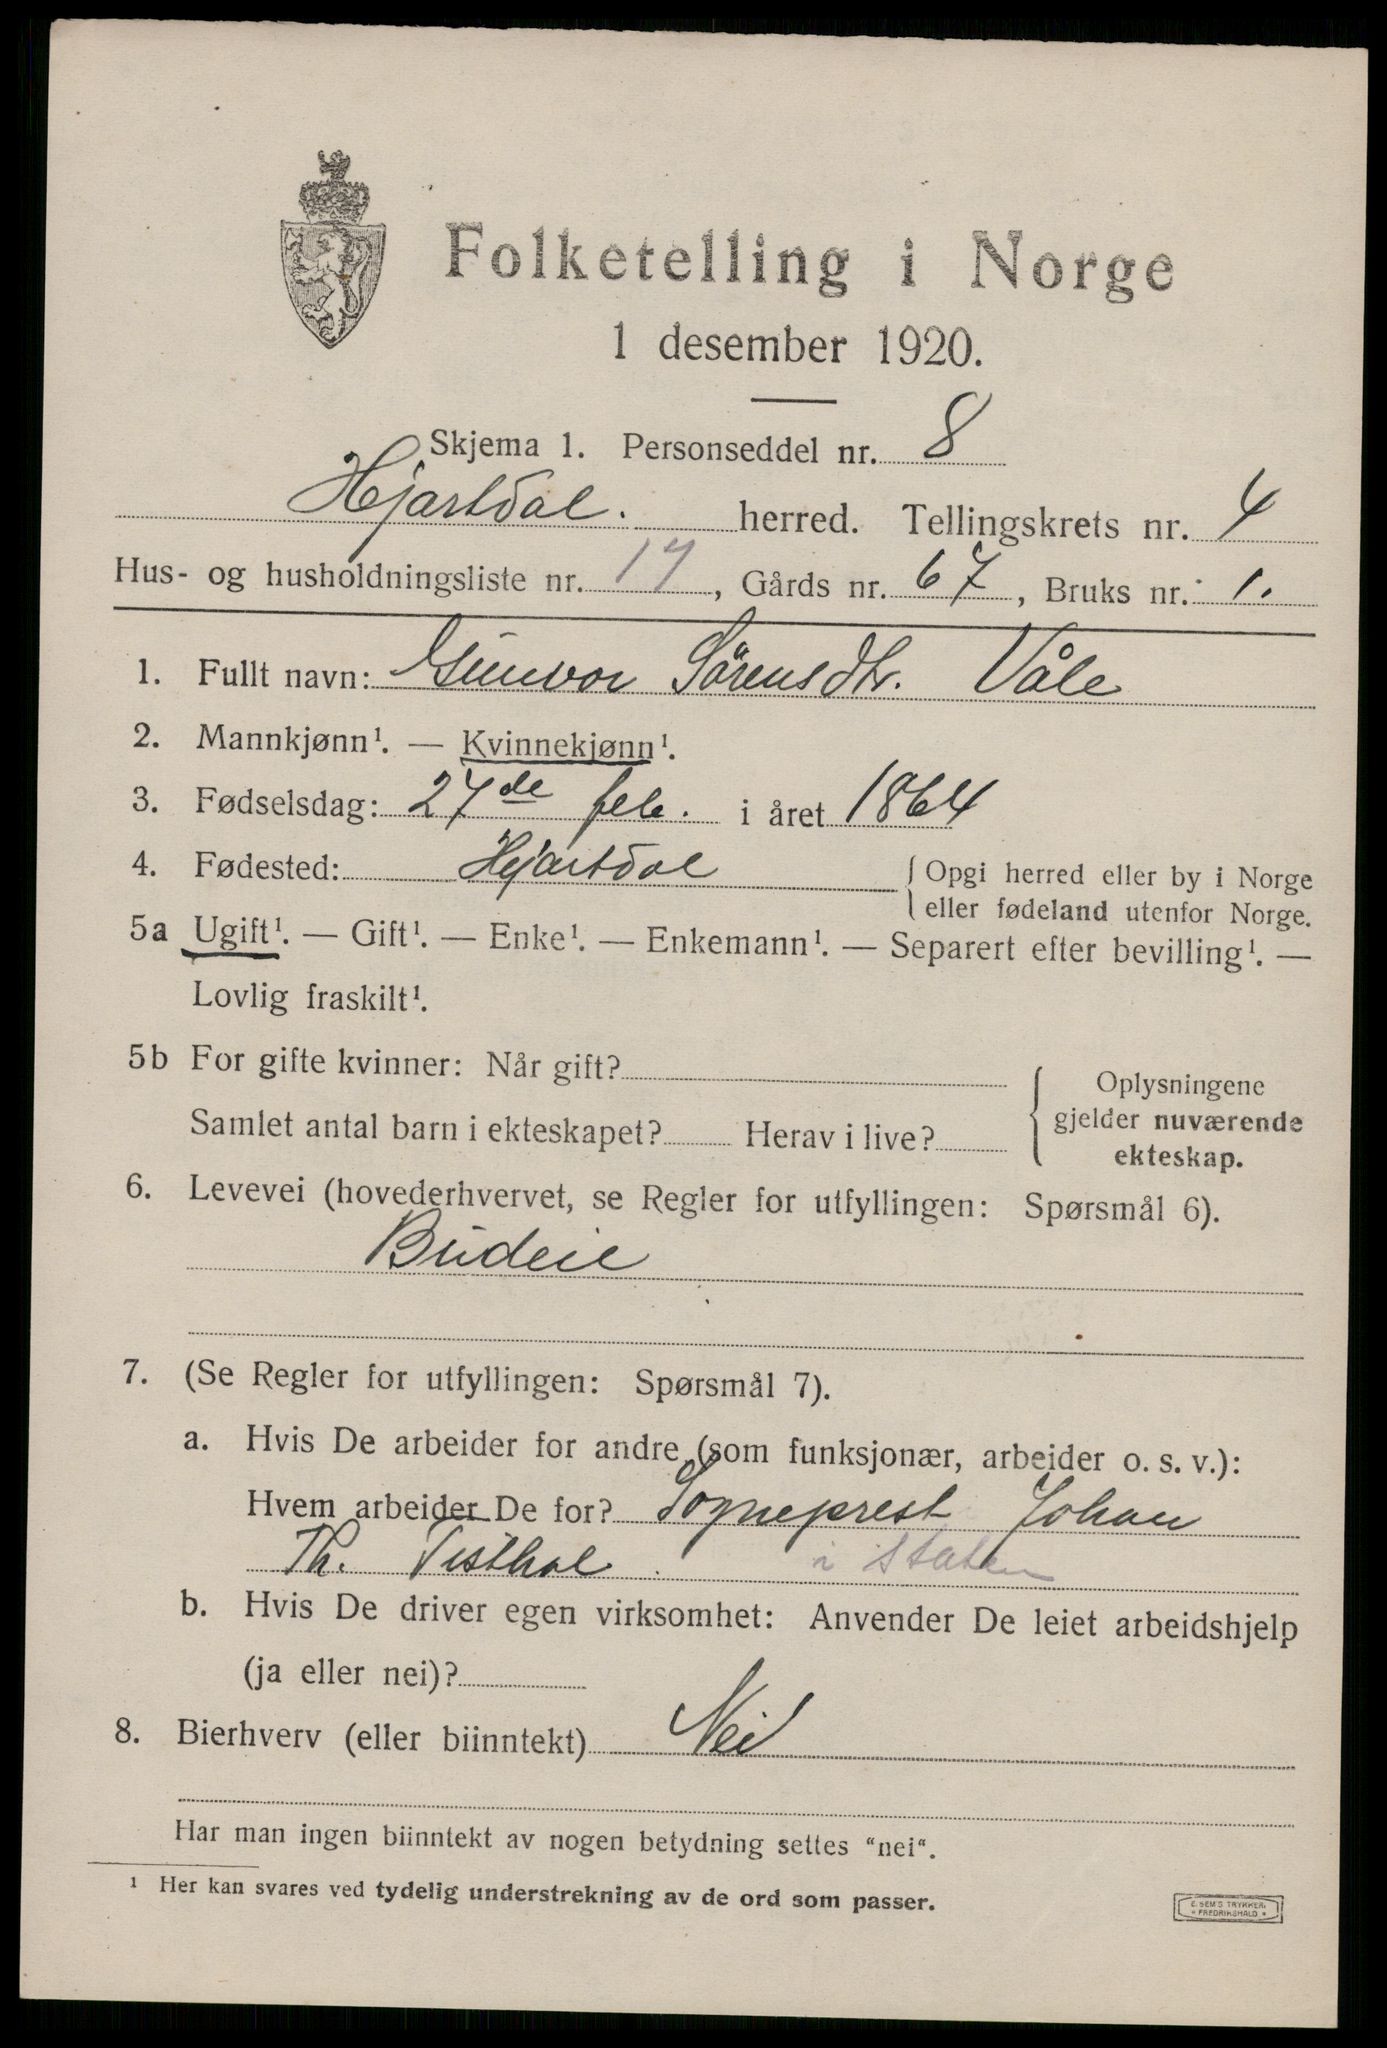 Folketelling i Norge
1 desember 1920.
Skjema 1. Personseddel nr. 8
Hjartdal. herred. Tellingskrets nr. 4
Hus- og husholdningsliste nr. 17, Gårds nr. 67, Bruks nr. 1.
1. Fullt navn: Gunvor Sörensdtr. Våle
2. Mannkjønn¹. — Kvinnekjønn¹.
3. Fødselsdag: 27de feb. i året 1864
4. Fødested: Hjartdal { Opgi herred eller by i Norge
eller fødeland utenfor Norge.
5a Ugift¹. — Gift¹. — Enke¹. — Enkemann¹. — Separert efter bevilling¹. —
Lovlig fraskilt¹.
5b For gifte kvinner: Når gift? { Oplysningene
Samlet antal barn i ekteskapet? Herav i live? gjelder nuværende
ekteskap.
6. Levevei (hovederhvervet, se Regler for utfyllingen: Spørsmål 6).
Budeie
7. (Se Regler for utfyllingen: Spørsmål 7).
a. Hvis De arbeider for andre (som funksjonær, arbeider o. s. v.):
Hvem arbeider De for? Sogneprest Johan
Th. Tisthal i staten
b. Hvis De driver egen virksomhet: Anvender De leiet arbeidshjelp
(ja eller nei)?
8. Bierhverv (eller biinntekt) Nei
Har man ingen biinntekt av nogen betydning settes "nei".
¹ Her kan svares ved tydelig understrekning av de ord som passer.
E. SEM'S TRYKKERI
* FREDRIKSHALD *